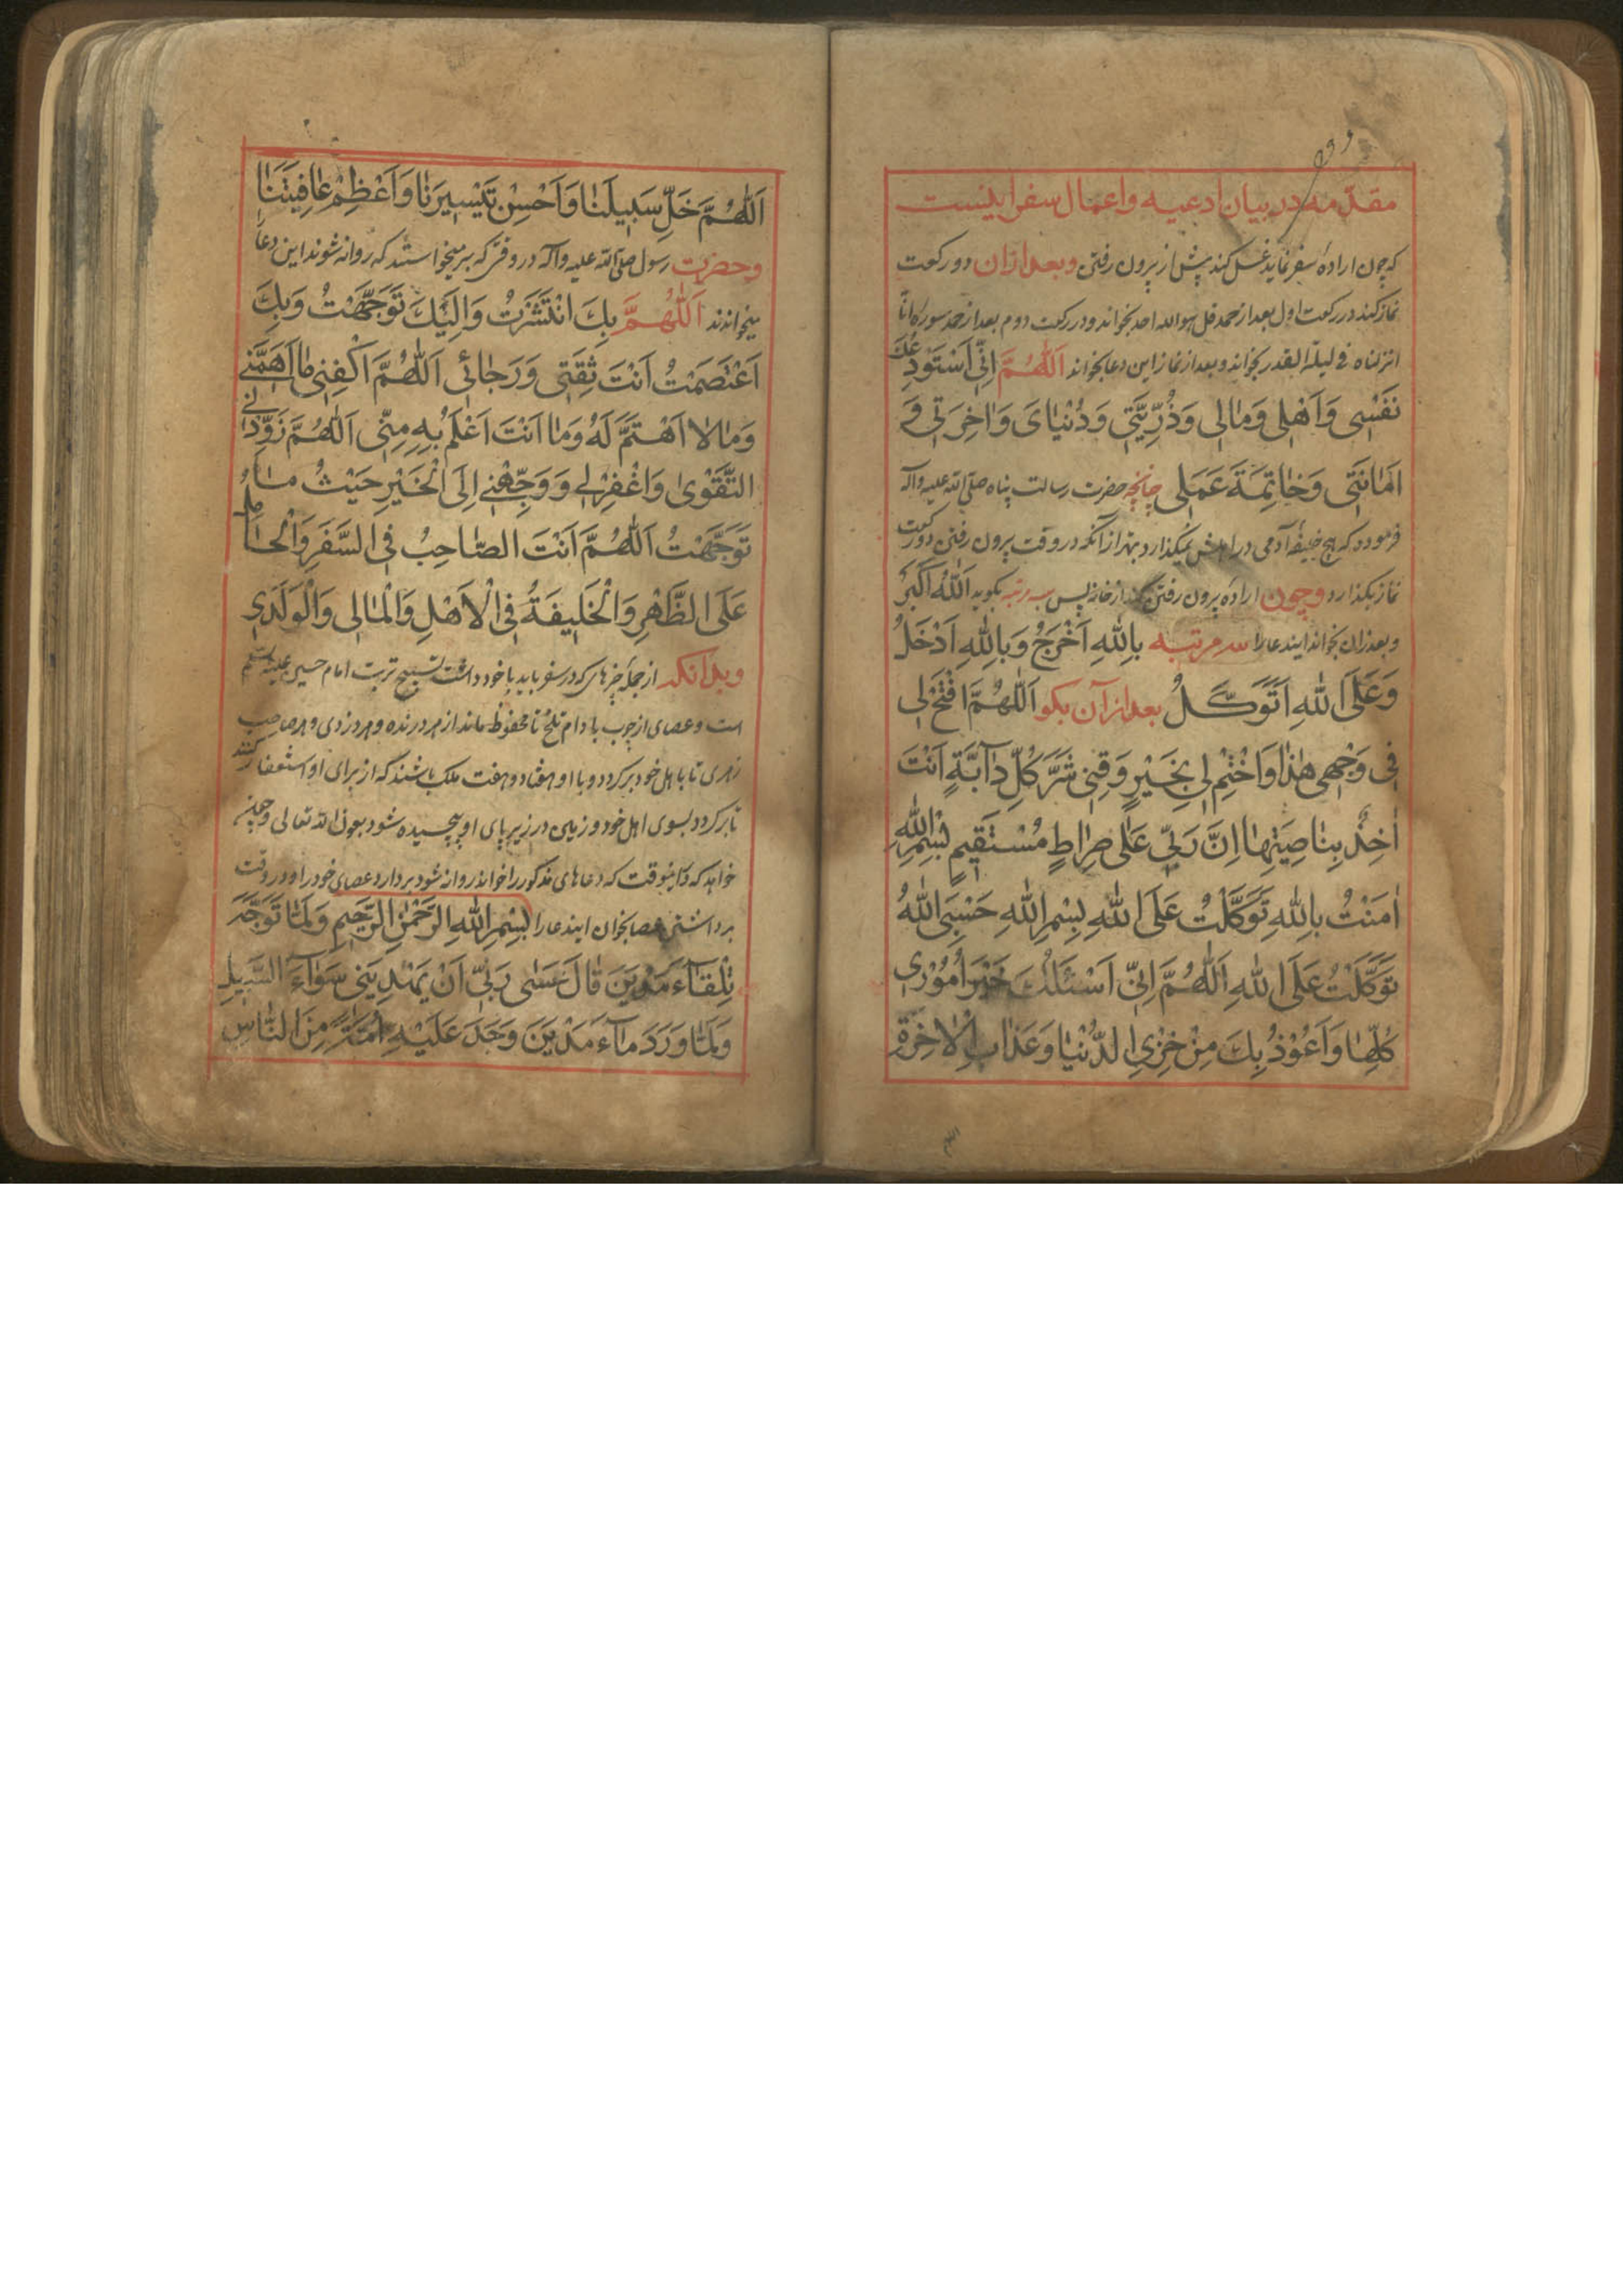 مقدّمه در بیان ادعیه و اعمال سفر اینست
که چون اراده سفر نماید غسل کند پیش از بیرون رفتن وبعد ازان دو رکعت
نماز کند در رکعت اول بعد از حمد قل هو الله احد بخواند و در رکعت دوم بعد از حمد سوره انّا
انزلناه فی لیلة القدر بخواند و بعد از نماز این دعا بخواند اَللّٰهُمَّ اِنِّی اَسْتَوْدِعُکَ
نَفْسِی وَاَهْلِی وَمٰالِی وَذُرِّیَّتِی وَدُنْیٰایَ وَاٰخِرَتِی وَ
اَمٰانَتِی وَخٰاتِمَةَ عَمَلِی چنانچه حضرت رسالت پناه صلّی الله علیه وآله
فرموده که هیچ خلیفهٔ آدمی در اهلش نمیگذارد بهتر از آنکه در وقت بیرون رفتن دو رکعت
نماز بکذارد وچون اراده بیرون رفتن کند از خانه پس سه مرتبه بکوید اَللّٰهُ اَکْبَرُ
و بعد ازان بخواند ایندعا را سه مرتبه بِاللّٰهِ اَخْرُجُ وَبِاللّٰهِ اَدْخُلُ
وَعَلَی اللّٰهِ اَتَوَکَّلُ بعد از آن بکو اَللّٰهُمَّ افْتَحْ لِی
فِی وَجْهِی هٰذٰا وَاخْتِمْ لِی بِخَیْرٍ وَقِنِی شَرَّ کُلِّ دٰآبَّةٍ اَنْتَ
اٰخِذٌ بِنٰاصِیَتِهٰا اِنَّ رَبِّی عَلٰی صِرٰاطٍ مُسْتَقِیمٍ بِسْمِ اللّٰهِ
اٰمَنْتُ بِاللّٰهِ تَوَکَّلْتُ عَلَی اللّٰهِ بِسْمِ اللّٰهِ حَسْبِیَ اللّٰهُ
تَوَکَّلْتُ عَلَی اللّٰهِ اَللّٰهُمَّ اِنِّی اَسْئَلُکَ خَیْرَ اُمُوْرِی
کُلِّهٰا وَاَعُوْذُ بِکَ مِنْ خِزْیِ الدُّنْیٰا وَعَذٰابِ الْاٰخِرَةِ
اَللّٰهُمَّ خَلِّ سَبِیلَنٰا وَاَحْسِنْ تَیْسِیرَنٰا وَاَعْظِمْ عٰافِیَتَنٰا
وحضرت رسول صلّی الله علیه وآله در وقتی که بسفر میخواستند که روانه شوند این دعا
میخواندند اَللّٰهُمَّ بِکَ انْتَشَرْتُ وَاِلَیْکَ تَوَجَّهْتُ وَبِکَ
اعْتَصَمْتُ اَنْتَ ثِقَتِی وَرَجٰائِی اَللّٰهُمَّ اکْفِنِی مٰا اَهَمَّنِی
وَمٰا لٰا اَهْتَمَّ لَهُ وَمٰا اَنْتَ اَعْلَمُ بِهِ مِنِّی اَللّٰهُمَّ زَوِّدْنِی
التَّقْوٰی وَاغْفِرْ لِی وَوَجِّهْنِی اِلَی الْخَیْرِ حَیْثُ مٰا
تَوَجَّهْتُ اَللّٰهُمَّ اَنْتَ الصّٰاحِبُ فِی السَّفَرِ وَالْحٰامِلُ
عَلَی الظَّهْرِ وَالْخَلِیفَةُ فِی الْاَهْلِ وَالْمٰالِ وَالْوَلَدِ
وبدانکه از جمله چیزهای که در سفر باید باخود داشت تسبیح تربت امام حسین علیه السلام
است و عصای از چوب بادام تلخ تا محفوظ ماند از هر درنده و هر دزدی و هر صاحب
زهری تا باهل خود برکردد و با او هفتاد و هفت ملک باشند که از برای او استغفار کنند
تا برکردد بسوی اهل خود و زمین در زیر پای او پیچیده شود بعون الله تعالی وچون
خواهد که دعاهای مذکور را خواند روانه شود بردارد عصای خود را و در وقت
برداشتن عصا بخوان ایندعا را بِسْمِ اللّٰهِ الرَّحْمٰنِ الرَّحِیمِ وَلَمّٰا تَوَجَّهَ
تِلْقٰآءَ مَدْیَنَ قٰالَ عَسٰی رَبِّی اَنْ یَهْدِیَنِی سَوٰآءَ السَّبِیلِ
وَلَمّٰا وَرَدَ مٰآءَ مَدْیَنَ وَجَدَ عَلَیْهِ اُمَّةً مِنَ النّٰاسِ